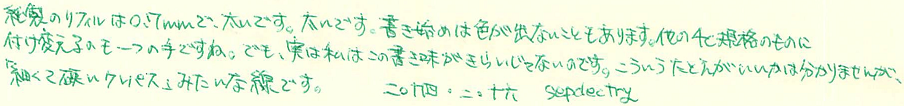 純製のリフィルは0.7mmで、太いです。太いです。書き始めは色が出ないこともあります。他の4C規格のものに
付け変えるのも一つの手ですね。でも、実は私はこの書き味がきらいじゃないのです。こういうたとえがいいかは分かりませんが、
「細くて硬いクレパス」みたいな線です。 二〇十四・二・十六